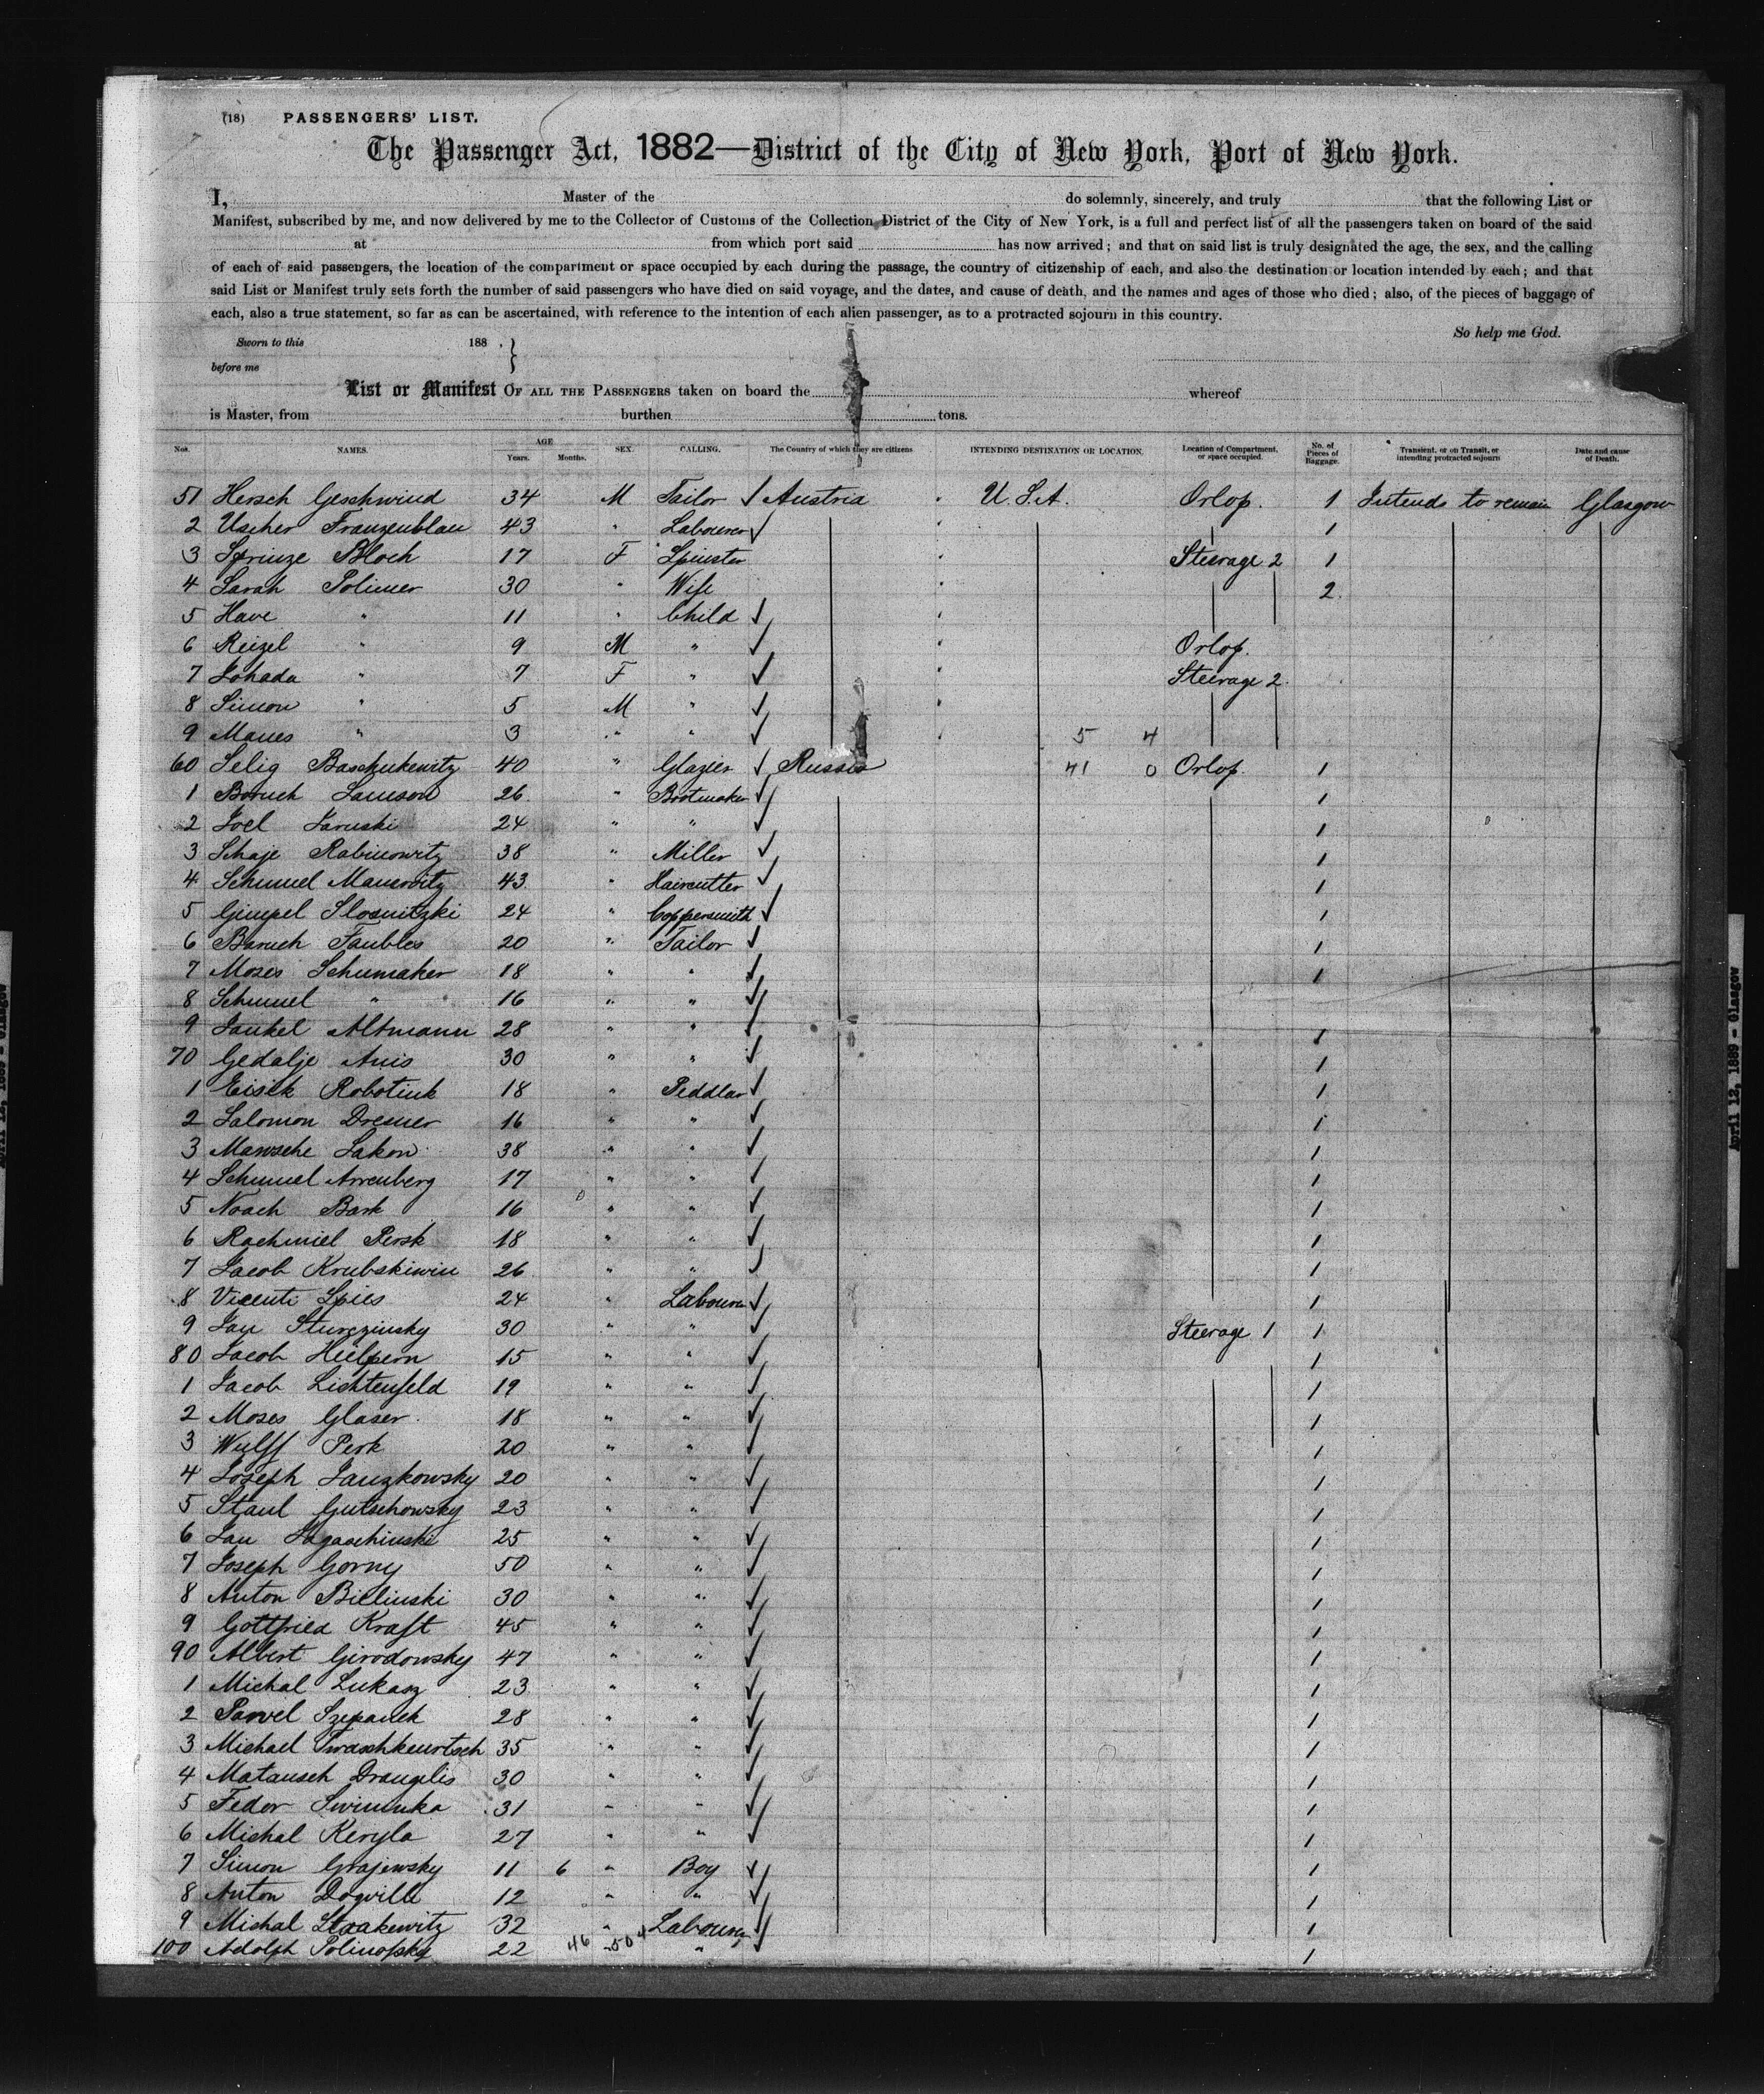 (18) PASSENGERS' LIST.
The Passenger Act, 1882—District of the City of New York, Port of New York.
I, Master of the do solemnly, sincerely, and truly that the following List or
Manifest, subscribed by me, and now delivered by me to the Collector of Customs of the Collection District of the City of New York, is a full and perfect list of all the passengers taken on board of the said
at from which port said has now arrived; and that on said list is truly designated the age, the sex, and the calling
of each of said passengers, the location of the compartment or space occupied by each during the passage, the country of citizenship of each, and also the destination or location intended by each; and that
said List or Manifest truly sets forth the number of said passengers who have died on said voyage, and the dates, and cause of death, and the names and ages of those who died; also, of the pieces of baggage of
each, also a true statement, so far as can be ascertained, with reference to the intention of each alien passenger, as to a protracted sojourn in this country.
So help me God.
Sworn to this 188 . }
before me
List or Manifest OF ALL THE PASSENGERS taken on board the whereof
is Master, from burthen tons.
Nos. NAMES. AGE Years. Months. SEX. CALLING. The Country of which they are citizens INTENDING DESTINATION OR LOCATION. Location of Compartment, or space occupied. No. of Pieces of Baggage. Transient, or on Transit, or intending protracted sojourn Date and cause of Death.
51 Hersch Geschwind 34 M Tailor ✓ Austria " U.S.A. Orlop. 1 Intends to remain Glasgow
2 Uscher Franzenblau 43 " Labourer ✓ " 1
3 Sprinze Bloch 17 F Spinster " Steerage 2 1
4 Sarah Polimer 30 " Wife " 2
5 Have " 11 " Child ✓ "
6 Reizel " 9 M " ✓ " Orlop.
7 " 7 F " ✓ " Steerage 2.
8 Simon " 5 M " ✓ "
9 Manes " 3 " " ✓ " 5 4
60 Selig 40 " Glazier ✓ Russia 41 0 Orlop. 1
1 Boruch Samson 26 " Bootmaker ✓ 1
2 Joel 24 " " ✓ 1
3 Schaje Rabinowitz 38 " Miller ✓ 1
4 Schmuel 43 " Haircutter ✓ 1
5 Gimpel Slosnitzki 24 " Coppersmith ✓ 1
6 Baruch Faubles 20 " Tailor ✓ 1
7 Moses Schumaker 18 " " ✓ 1
8 Schmuel " 16 " " ✓
9 Jankel Altmann 28 " " ✓ 1
70 Gedalje Anis 30 " " ✓ 1
1 Eisek Robotink 18 " Peddlar ✓ 1
2 Salomon Dresner 16 " " ✓ 1
3 Mawsche Lakon 38 " " ✓ 1
4 Schmuel Arrenberg 17 " " ✓ 1
5 Noach Bark 16 " " ✓ 1
6 Rachmiel Persk 18 " " ✓ 1
7 Jacob 26 " " ✓ 1
8 Vicenti Spies 24 " Labourer ✓ 1
9 Jan 30 " " ✓ Steerage 1 1
80 Jacob Hielpern 15 " " ✓ 1
1 Jacob Lichtenfeld 19 " " ✓ 1
2 Moses Glaser 18 " " ✓ 1
3 Wulff Perk 20 " " ✓ 1
4 Joseph Janzkowsky 20 " " ✓ 1
5 Gutschowsky 23 " " ✓ 1
6 Jan 25 " " ✓ 1
7 Joseph Gorny 50 " " ✓ 1
8 Anton Bielinski 30 " " ✓ 1
9 Gottfried Kraft 45 " " ✓ 1
90 Albert Girodowsky 47 " " ✓ 1
1 Michal Lukasz 23 " " ✓ 1
2 Pawel Szepanek 28 " " ✓ 1
3 Michael 35 " " ✓ 1
4 Matausch Drangelis 30 " " ✓ 1
5 Fedor 31 " " ✓ 1
6 Michal Keryla 27 " " ✓ 1
7 Simon Grajewsky 11 6 " Boy ✓ 1
8 Anton Dogville 12 " " ✓ 1
9 Michal 32 " Labourer ✓ 1
100 Adolph Polinofsky 22 46 " 50 4 " ✓ 1
April 12, 1889 - Glasgow
April 12, 1889 - Glasgow